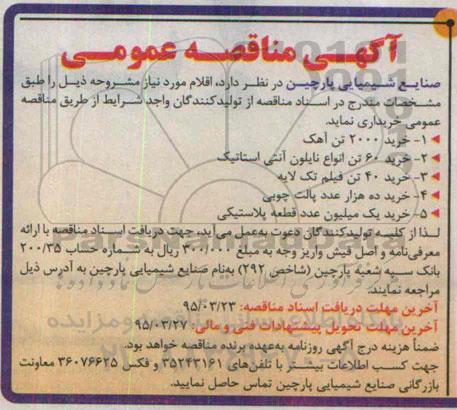 آگهی مناقصه عمومی
صنایع شیمیایی پارچین در نظر دارد، اقلام مورد نیاز مشروحه ذیل را طبق
مشخصات مندرج در اسناد مناقصه از تولیدکنندگان واجد شرایط از طریق مناقصه
عمومی خریداری نماید.
۱- خرید ۲۰۰۰ تن آهک
۲- خرید ۶۰ تن انواع نایلون آنتی استاتیک
۳- خرید ۴۰ تن فیلم تک لایه
۴- خرید ده هزار عدد پالت چوبی
۵- خرید یک میلیون عدد قطعه پلاستیکی
لذا از کلیه تولیدکنندگان دعوت به‌عمل می‌آید، جهت دریافت اسناد مناقصه با ارائه
معرفی‌نامه و اصل فیش واریز وجه به مبلغ ۳۰۰/۰۰۰ ریال به شماره حساب ۲۰۰/۳۵
بانک سپه شعبه پارچین (شاخص ۲۹۲) به‌نام صنایع شیمیایی پارچین به آدرس ذیل
مراجعه نمایند.
آخرین مهلت دریافت اسناد مناقصه: ۹۵/۰۳/۲۳
آخرین مهلت تحویل پیشنهادات فنی و مالی: ۹۵/۰۳/۲۷
ضمناً هزینه درج آگهی روزنامه به‌عهده برنده مناقصه خواهد بود.
جهت کسب اطلاعات بیشتر با تلفن‌های ۳۵۲۴۳۱۶۱ و فکس ۳۶۰۷۶۶۲۵ معاونت
بازرگانی صنایع شیمیایی پارچین تماس حاصل نمایید.